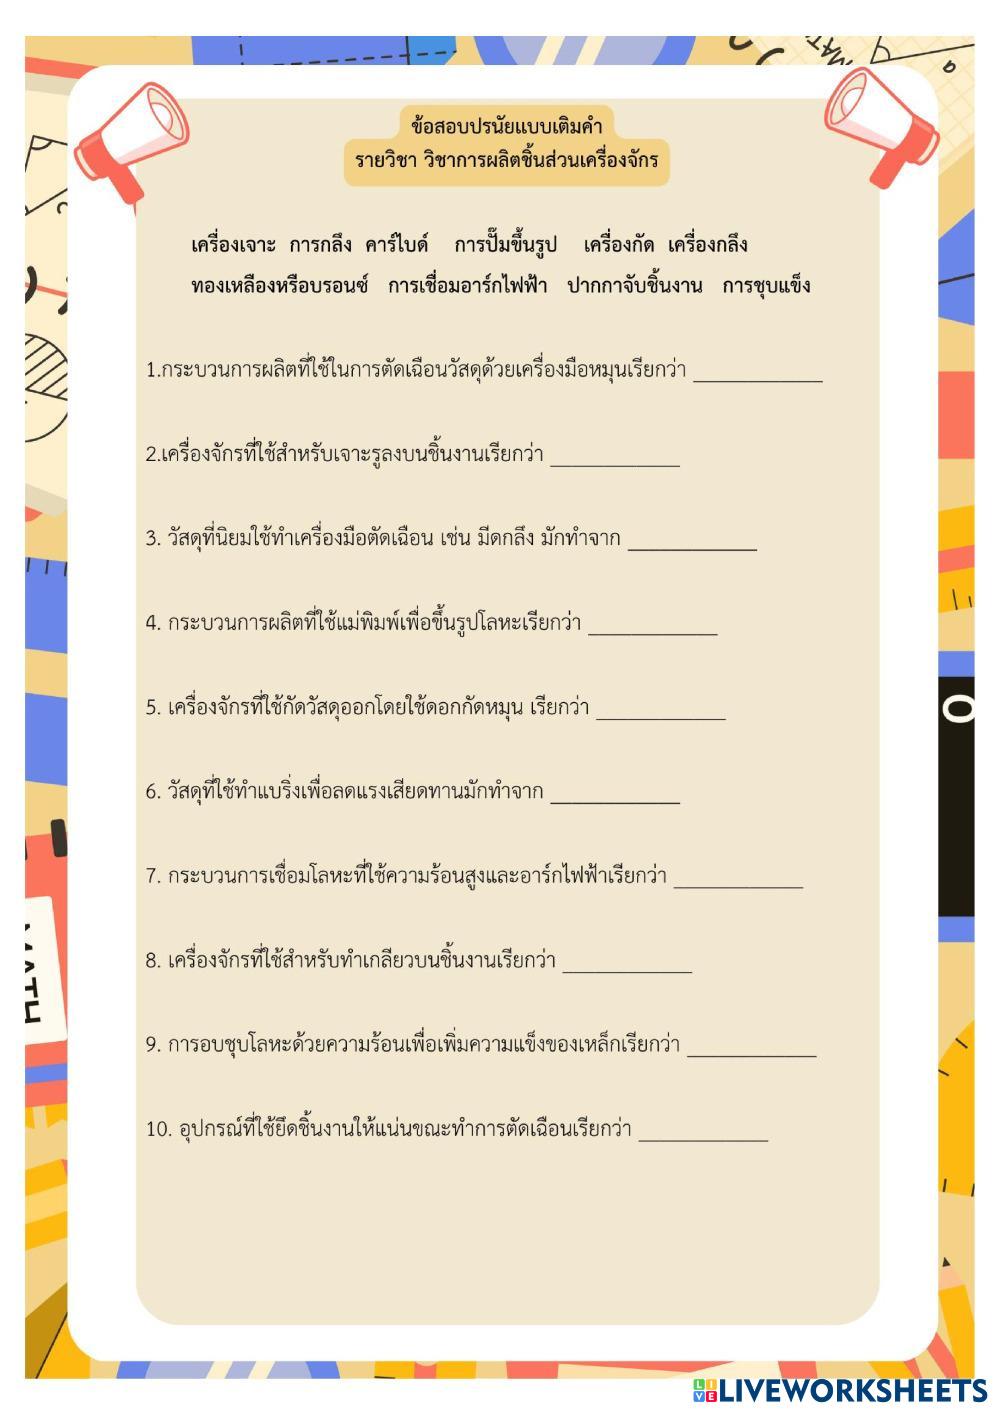 ข้อสอบปรนัยแบบเติมคำ
รายวิชา วิชาการผลิตชิ้นส่วนเครื่องจักร
เครื่องเจาะ การกลึง คาร์ไบด์ การปั๊มขึ้นรูป เครื่องกัด เครื่องกลึง
ทองเหลืองหรือบรอนซ์ การเชื่อมอาร์กไฟฟ้า ปากกาจับชิ้นงาน การชุบแข็ง
1.กระบวนการผลิตที่ใช้ในการตัดเฉือนวัสดุด้วยเครื่องมือหมุนเรียกว่า ____________
2.เครื่องจักรที่ใช้สำหรับเจาะรูลงบนชิ้นงานเรียกว่า ____________
3. วัสดุที่นิยมใช้ทำเครื่องมือตัดเฉือน เช่น มีดกลึง มักทำจาก ____________
4. กระบวนการผลิตที่ใช้แม่พิมพ์เพื่อขึ้นรูปโลหะเรียกว่า ____________
5. เครื่องจักรที่ใช้กัดวัสดุออกโดยใช้ดอกกัดหมุน เรียกว่า ____________
6. วัสดุที่ใช้ทำแบริ่งเพื่อลดแรงเสียดทานมักทำจาก ____________
7. กระบวนการเชื่อมโลหะที่ใช้ความร้อนสูงและอาร์กไฟฟ้าเรียกว่า ____________
8. เครื่องจักรที่ใช้สำหรับทำเกลียวบนชิ้นงานเรียกว่า ____________
9. การอบชุบโลหะด้วยความร้อนเพื่อเพิ่มความแข็งของเหล็กเรียกว่า ____________
10. อุปกรณ์ที่ใช้ยึดชิ้นงานให้แน่นขณะทำการตัดเฉือนเรียกว่า ____________
LIVEWORKSHEETS